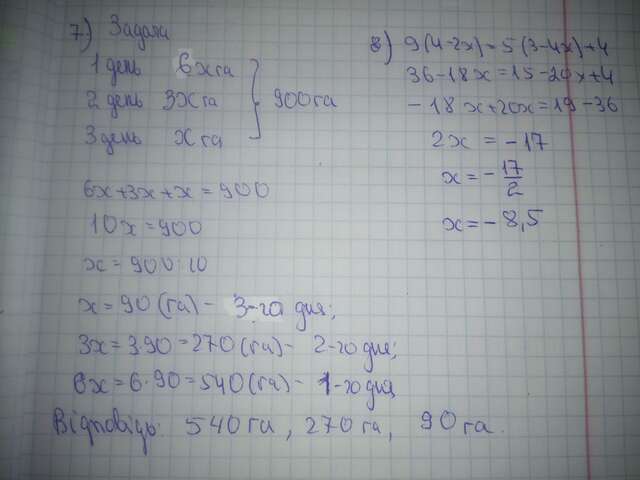 7) Задача
1 день 6х га
2 день 3х га
3 день х га
900 га
6х+3х+х=900
10х=900
х=900:10
х=90(га)- 3-го дня;
3х=3·90=270(га)- 2-го дня;
6х=6·90=540(га)- 1-го дня
Відповідь: 540 га, 270 га, 90 га.
8) 9(4-2х)=5(3-4х)+4
36-18х=15-20х+4
-18х+20х=19-36
2х = -17
х=-17/2
х=-8,5